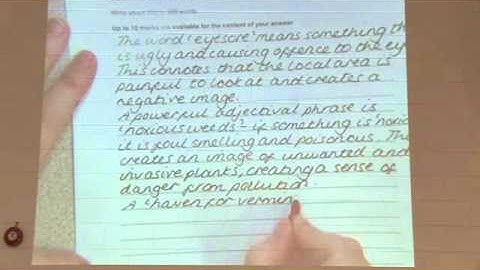 Write about 200 to 300 words.
Up to 10 marks are available for the content of your answer
The word 'eyesore' means something th
is ugly and causing offence to the ey
This connotes that the local area is
painful to look at and creates a
negative image.
A powerful adjectival phrase is
'noxious weeds' - if something is 'noxio
it is foul smelling and poisonous. Thi
creates an image of unwanted and
invasive plants, creating a sense of
danger from pollution.
A 'haven for vermin